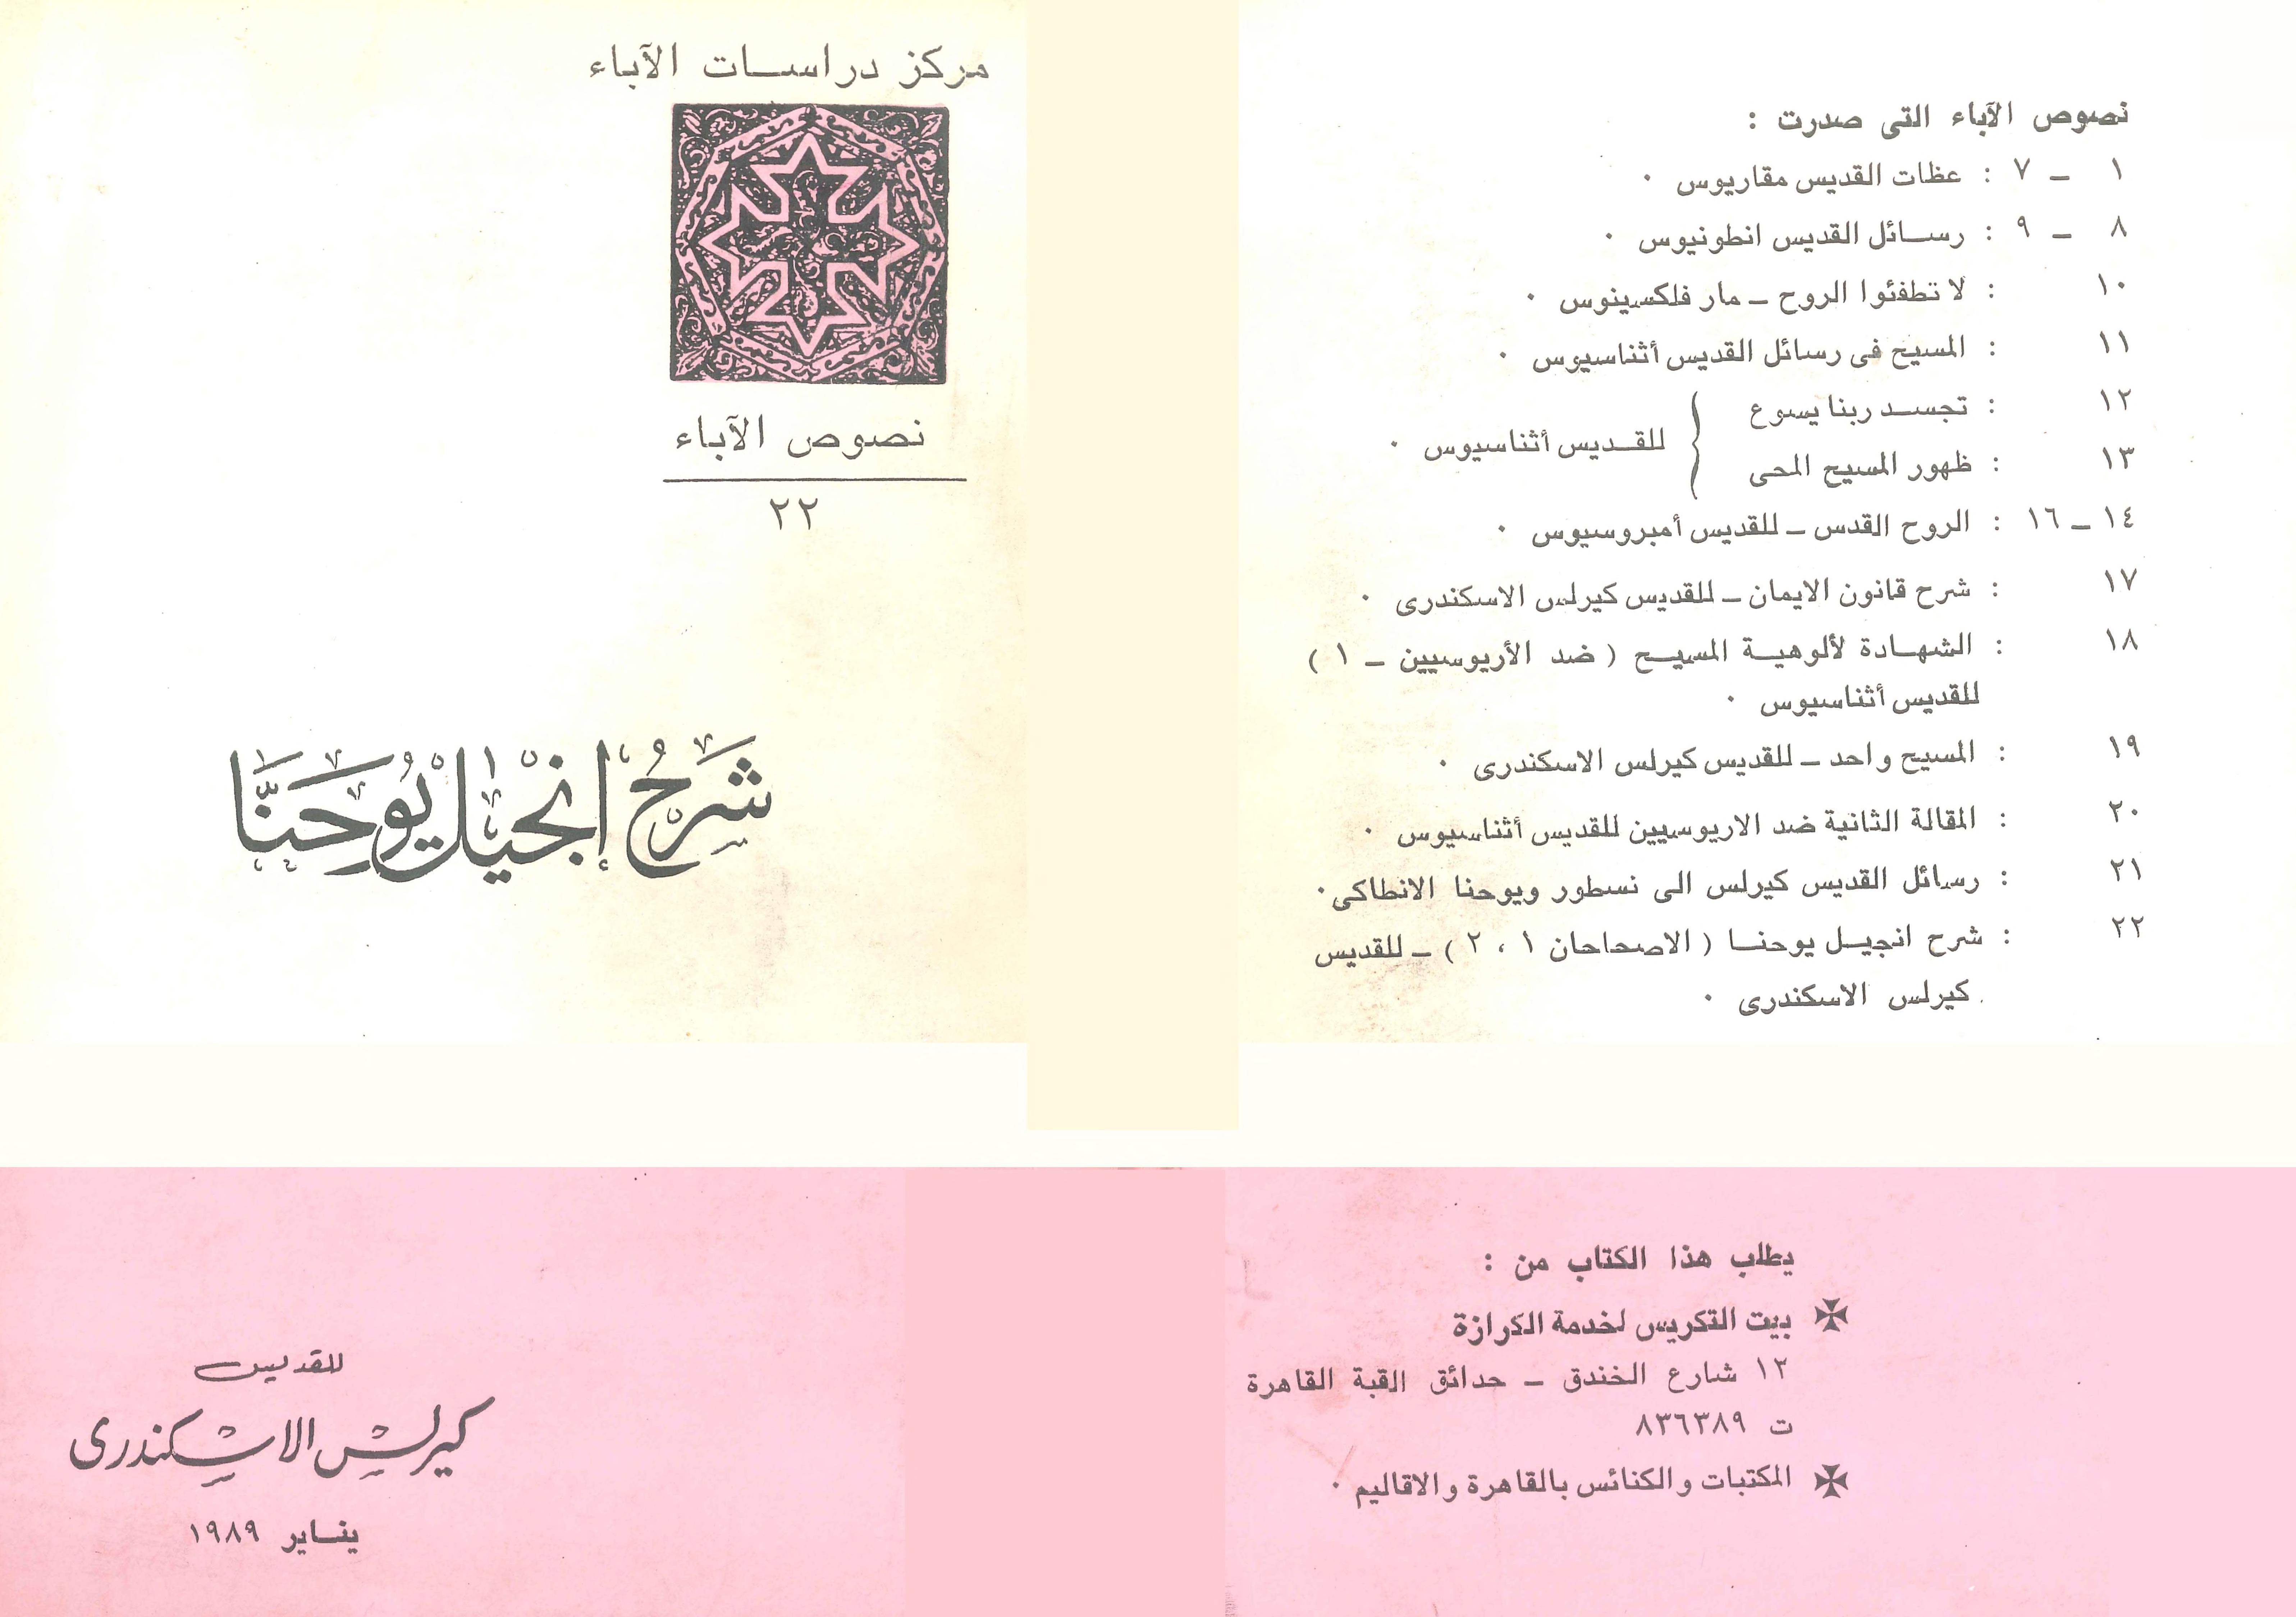 مركز دراسات الآباء
نصوص الآباء
٢٢
شَرْحُ إنْجيل يُوحَنَّا
للقديس
كيرلس الاسكندرى
يناير ١٩٨٩
نصوص الآباء التى صدرت :
١ ـ ٧ : عظات القديس مقاريوس ٠
٨ ـ ٩ : رسائل القديس انطونيوس ٠
١٠ : لا تطفئوا الروح ـ مار فلكسينوس ٠
١١ : المسيح فى رسائل القديس أثناسيوس ٠
١٢ : تجسد ربنا يسوع
١٣ : ظهور المسيح المحى
للقديس أثناسيوس ٠
١٤ ـ ١٦ : الروح القدس ـ للقديس أمبروسيوس ٠
١٧ : شرح قانون الايمان ـ للقديس كيرلس الاسكندرى ٠
١٨ : الشهادة لألوهية المسيح ( ضد الأريوسيين ـ ١ )
للقديس أثناسيوس ٠
١٩ : المسيح واحد ـ للقديس كيرلس الاسكندرى ٠
٢٠ : المقالة الثانية ضد الاريوسيين للقديس أثناسيوس ٠
٢١ : رسائل القديس كيرلس الى نسطور ويوحنا الانطاكى ٠
٢٢ : شرح انجيل يوحنا ( الاصحاحان ١ ، ٢ ) ـ للقديس
كيرلس الاسكندرى ٠
يطلب هذا الكتاب من :
بيت التكريس لخدمة الكرازة
١٢ شارع الخندق ـ حدائق القبة القاهرة
ت ٨٣٦٣٨٩
المكتبات والكنائس بالقاهرة والاقاليم ٠